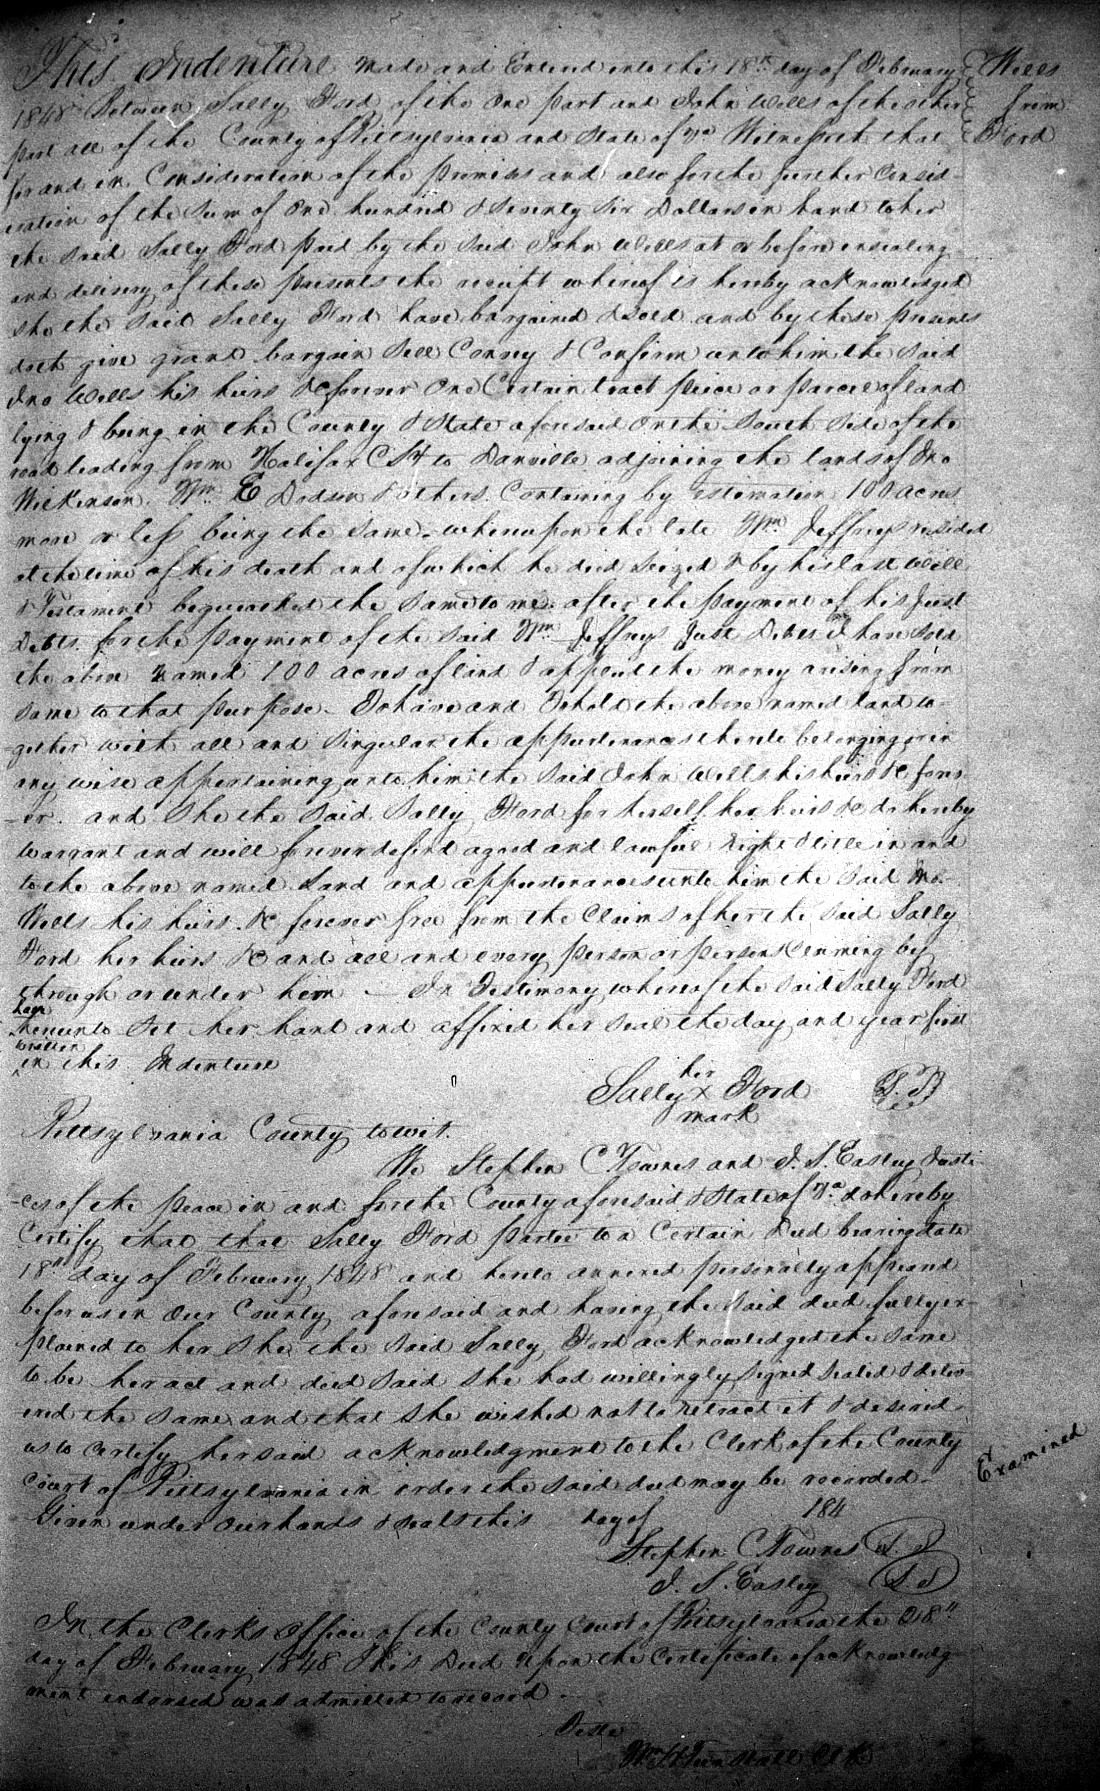 This Indenture Made and Entered into this 18th day of February
1848 Between Sally Ford of the One part and John Wells of the other
part all of the County of Pittsylvania and State of Va Witnesseth that
for and in Consideration of the premises and also for the further Consid-
eration of the sum of One hundred & seventy six Dollars in hand to her
the said Sally Ford paid by the said John Wells at or before ensealing
and delivery of these presents the receipt whereof is hereby acknowledged
she the said Sally Ford have bargained & sold and by these presents
doth give grant bargain Sell Convey & Confirm unto him the said
Jno Wells his heirs &c forever One Certain tract peice or parcel of land
lying & being in the County & State aforesaid on the South Side of the
road leading from Halifax C H to Danville adjoining the lands of Jno
Wilkerson Wm E Dodson & others Containing by estimation 100 acres
more or less being the same whereupon the late Wm Jeffreys resided
at the time of his death and of which he died seized & by his last Will
& Testament bequeathed the same to me after the payment of his Just
Debts for the payment of the said Wm Jeffreys Just Debts I have sold
the above named 100 acres of land & applied the money arising from
same to that purpose - To have and To hold the above named land to-
gether with all and singular the appurtenances thereto belonging or in
any wise appertaining unto him the said John Wells his heirs &c forev-
-er. and She the said Sally Ford for herself her heirs &c do hereby
warrant and will forever defend a good and lawful right & title in and
to the above named Land and appurtenances unto him the said Jno
Wells his heirs &c forever free from the Claims of her the said Sally
Ford her heirs &c and all and every person or persons Claiming by
through or under him - In Testimony whereof the said Sally Ford
have
hereunto Set her hand and affixed her seal the day and year first
written
in this Indenture
her
Sally x Ford
mark
Pittsylvania County towit.
We Stephen C Townes and J. S. Easley Justi-
-ces of the peace in and for the County aforesaid & State of Va do hereby
Certify that that Sally Ford partee to a Certain Deed bearing date
18th day of February 1848 and hereto annexed personally appeared
before us in Our County aforesaid and having the said deed fully ex-
plained to her She the said Sally Ford acknowledged the same
to be her act and deed said she had willingly signed sealed & deliv-
ered the same and that she wished not to retract it & desired
us to certify her said acknowledgment to the Clerk of the County
Court of Pittsylvania in order the said deed may be recorded -
Given under our hands & seals this day of 184
Stephen C Townes L S
J. S. Easley L S
In the Clerks Office of the County Court of Pittsylvania the 28th
day of February 1848 This Deed upon the Certificate of acknowledg-
ment endorsed was admitted to record -
Teste
Wm H Tunstall Clk
Wells
from
Ford
Examined